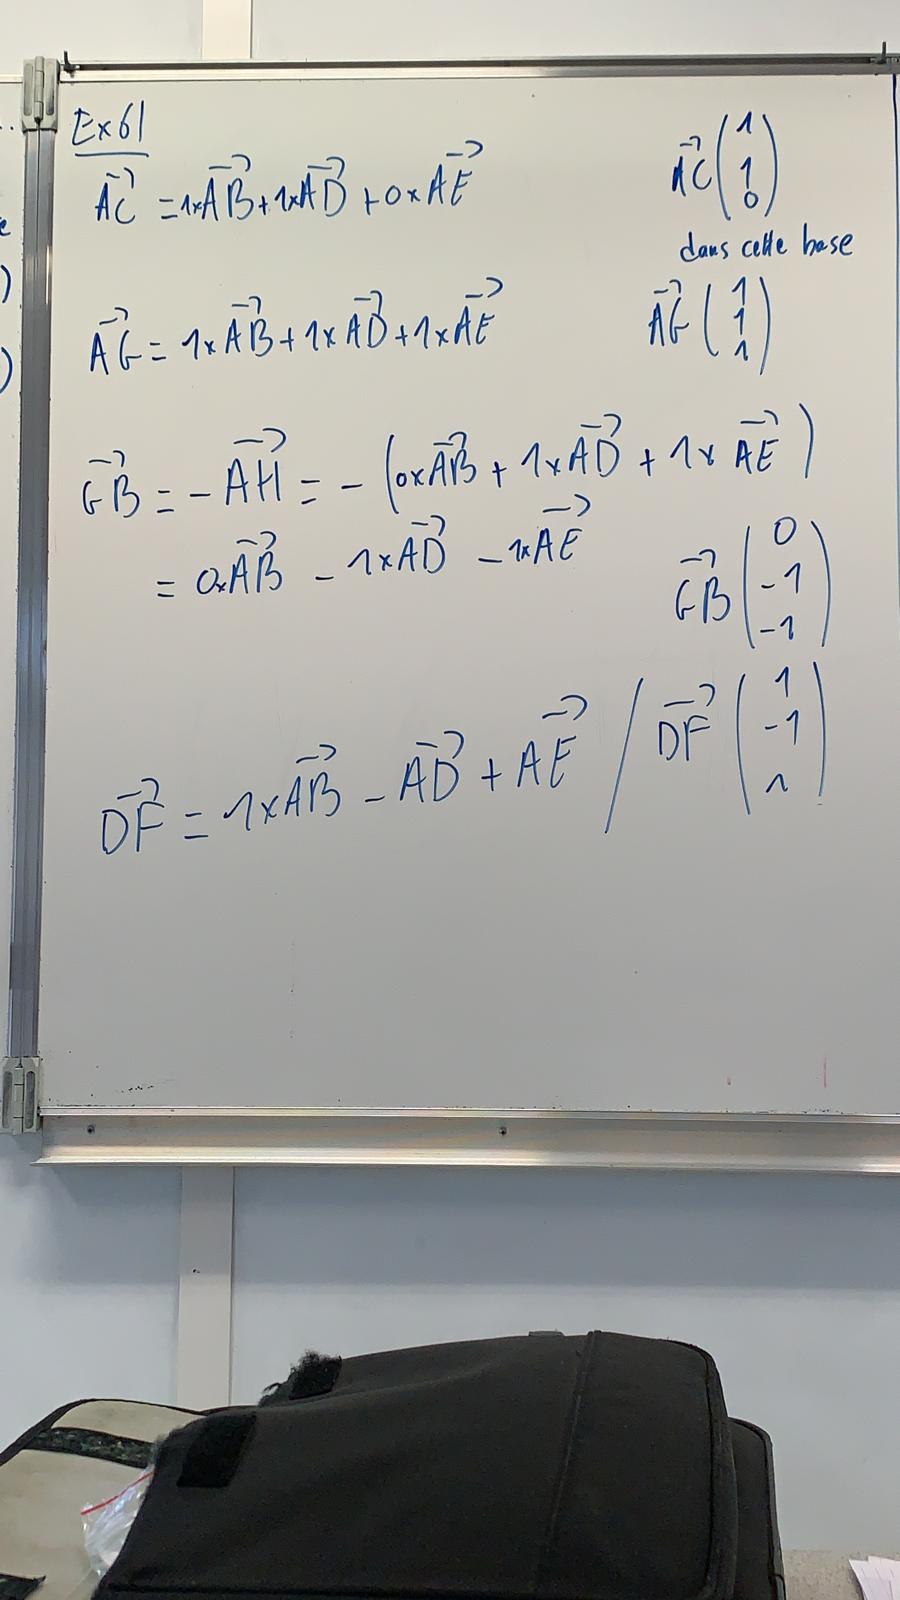 Ex61
→AC = 1x→AB + 1x→AD + 0x→AE    →AC (1 1 0)
dans cette base
→AG = 1x→AB + 1x→AD + 1x→AE    →AG (1 1 1)
→GB = - →AH = - (0x→AB + 1x→AD + 1x →AE)
= 0x→AB - 1x→AD - 1x→AE    →GB (0 -1 -1)
→DF = 1x→AB - →AD + →AE / →DF (1 -1 1)